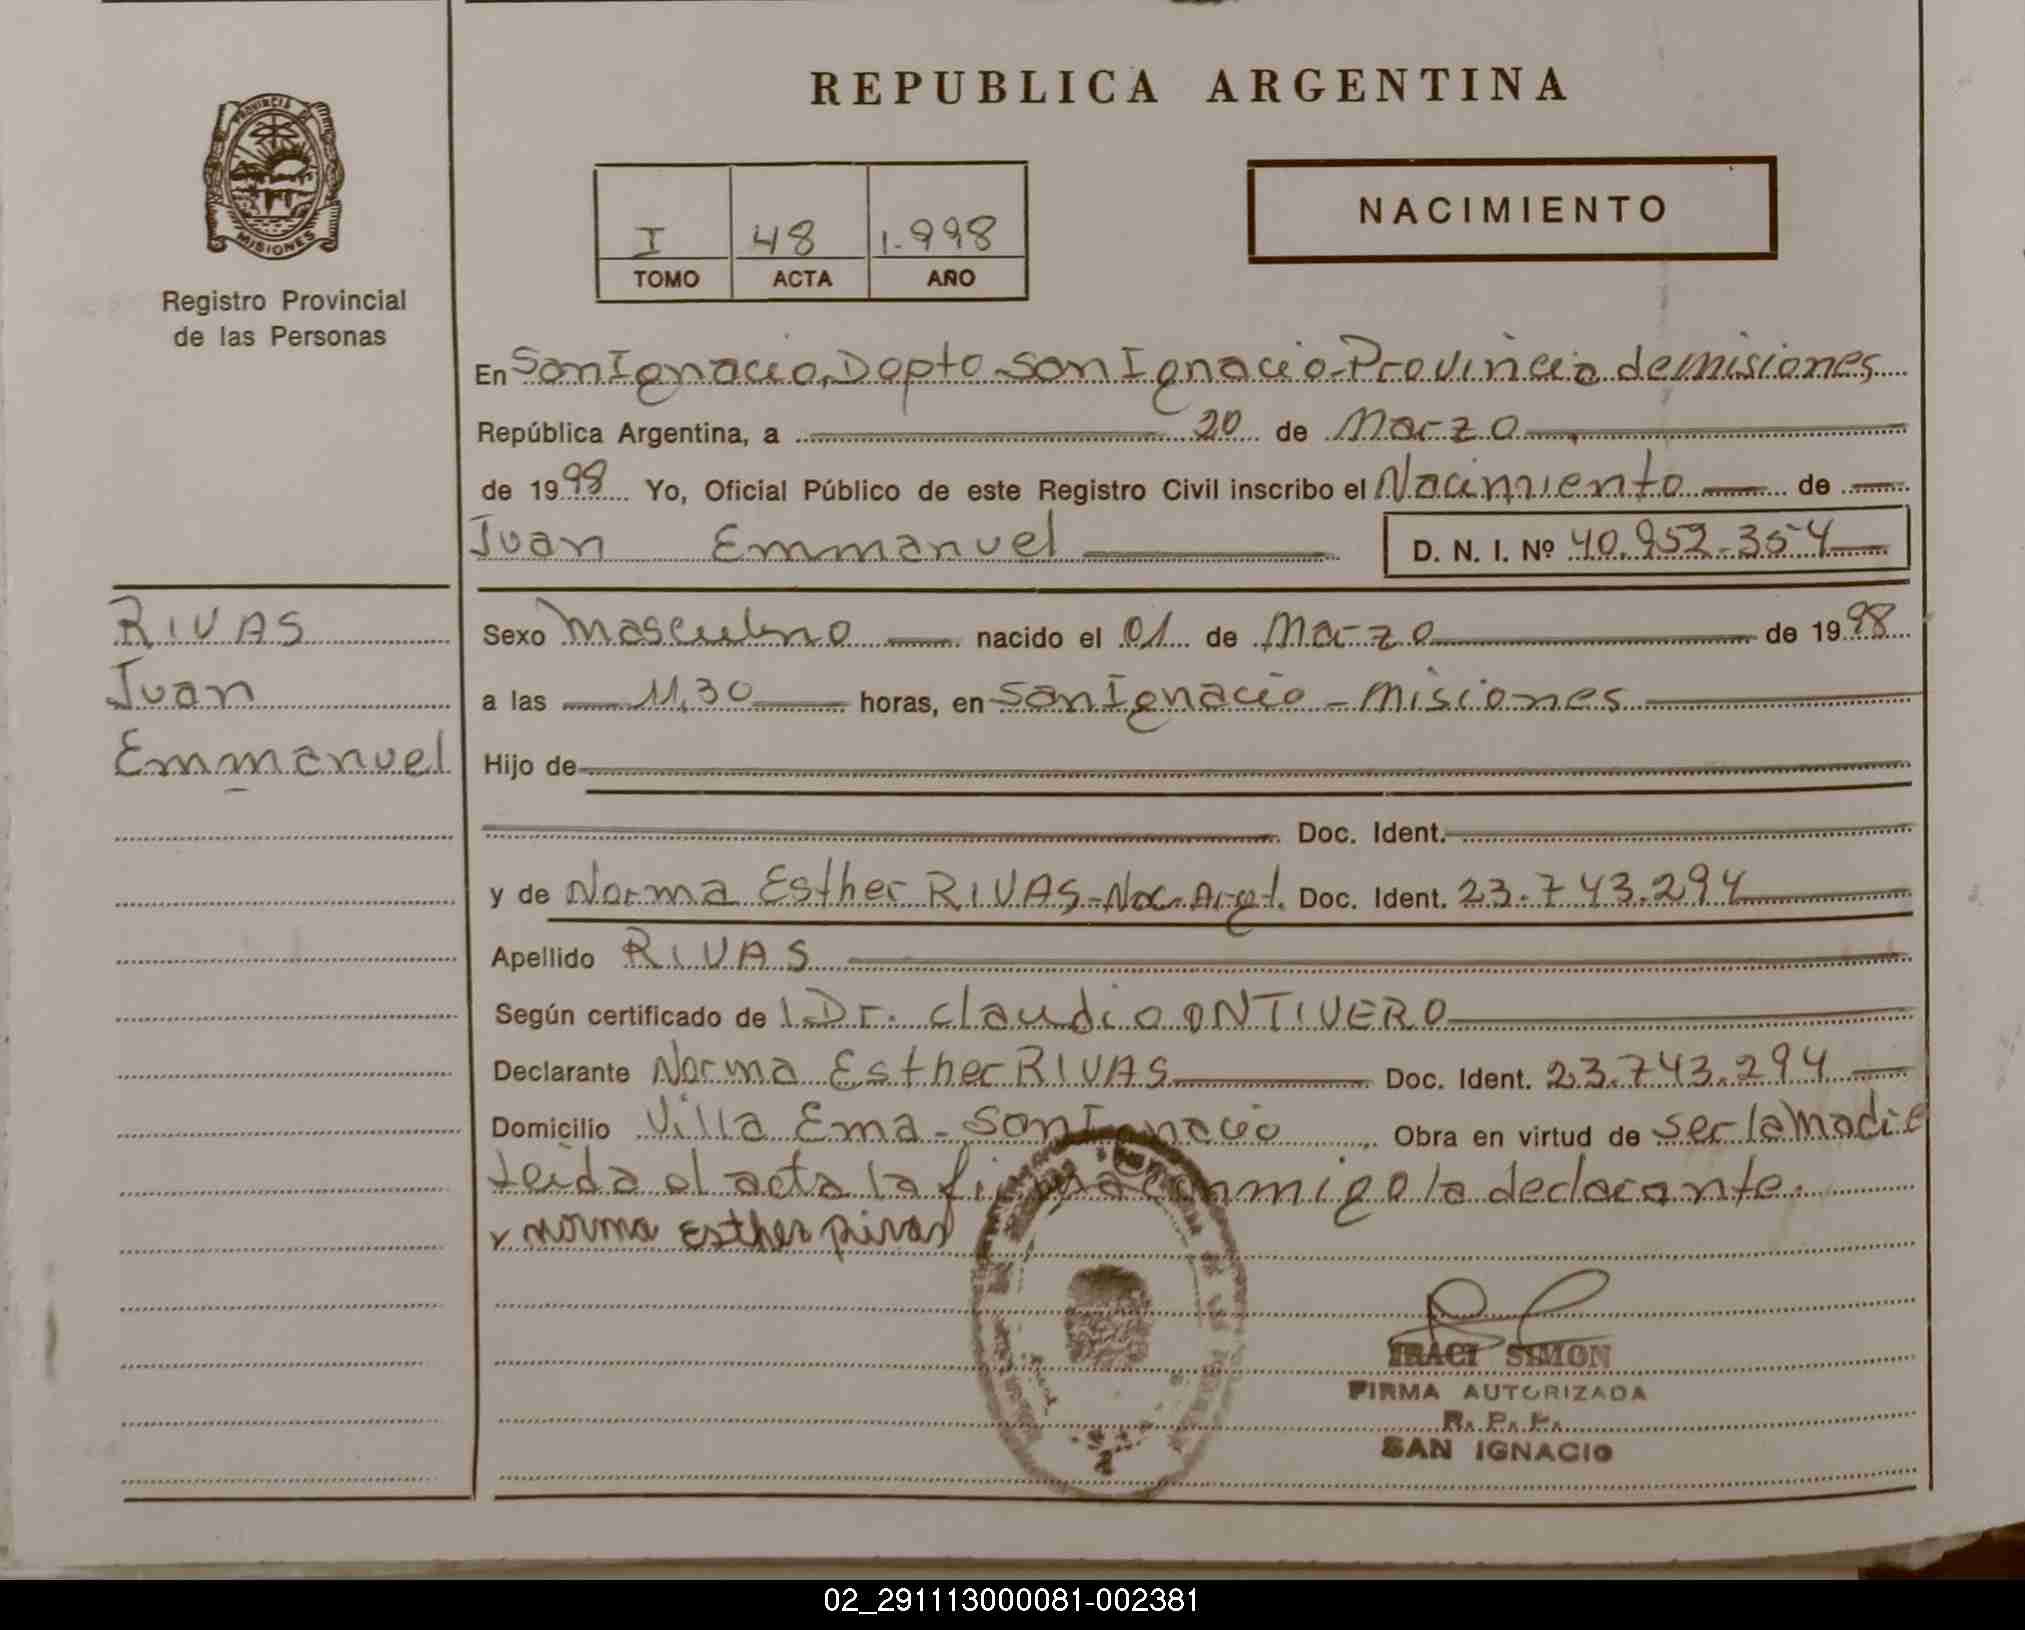 REPUBLICA ARGENTINA
PROVINCIA DE
MISIONES
Registro Provincial
de las Personas
I 48 1.998
TOMO ACTA AÑO
NACIMIENTO
En San Ignacio, Dapto San Ignacio-Provincia de misiones
República Argentina, a 20 de Marzo
de 1998 Yo, Oficial Público de este Registro Civil inscribo el Nacimiento de
Juan Emmanuel D. N. I. Nº 40.952.354
RIVAS
Juan
Emmanuel
Sexo Masculino nacido el 01 de Marzo de 1998
a las 11,30 horas, en San Ignacio - Misiones
Hijo de
Doc. Ident.
y de Norma Esther RIVAS-Nac. Argt. Doc. Ident. 23.743.294
Apellido RIVAS
Según certificado de l Dr. Claudio ONTIVERO
Declarante Norma Esther RIVAS Doc. Ident. 23.743.294
Domicilio Villa Ema - San Ignacio Obra en virtud de ser la Madre
Leida el acta la firma conmigo la declarante.
x norma Esther rivas
IRACI SIMON
FIRMA AUTORIZADA
R. P. P.
SAN IGNACIO
02_291113000081-002381